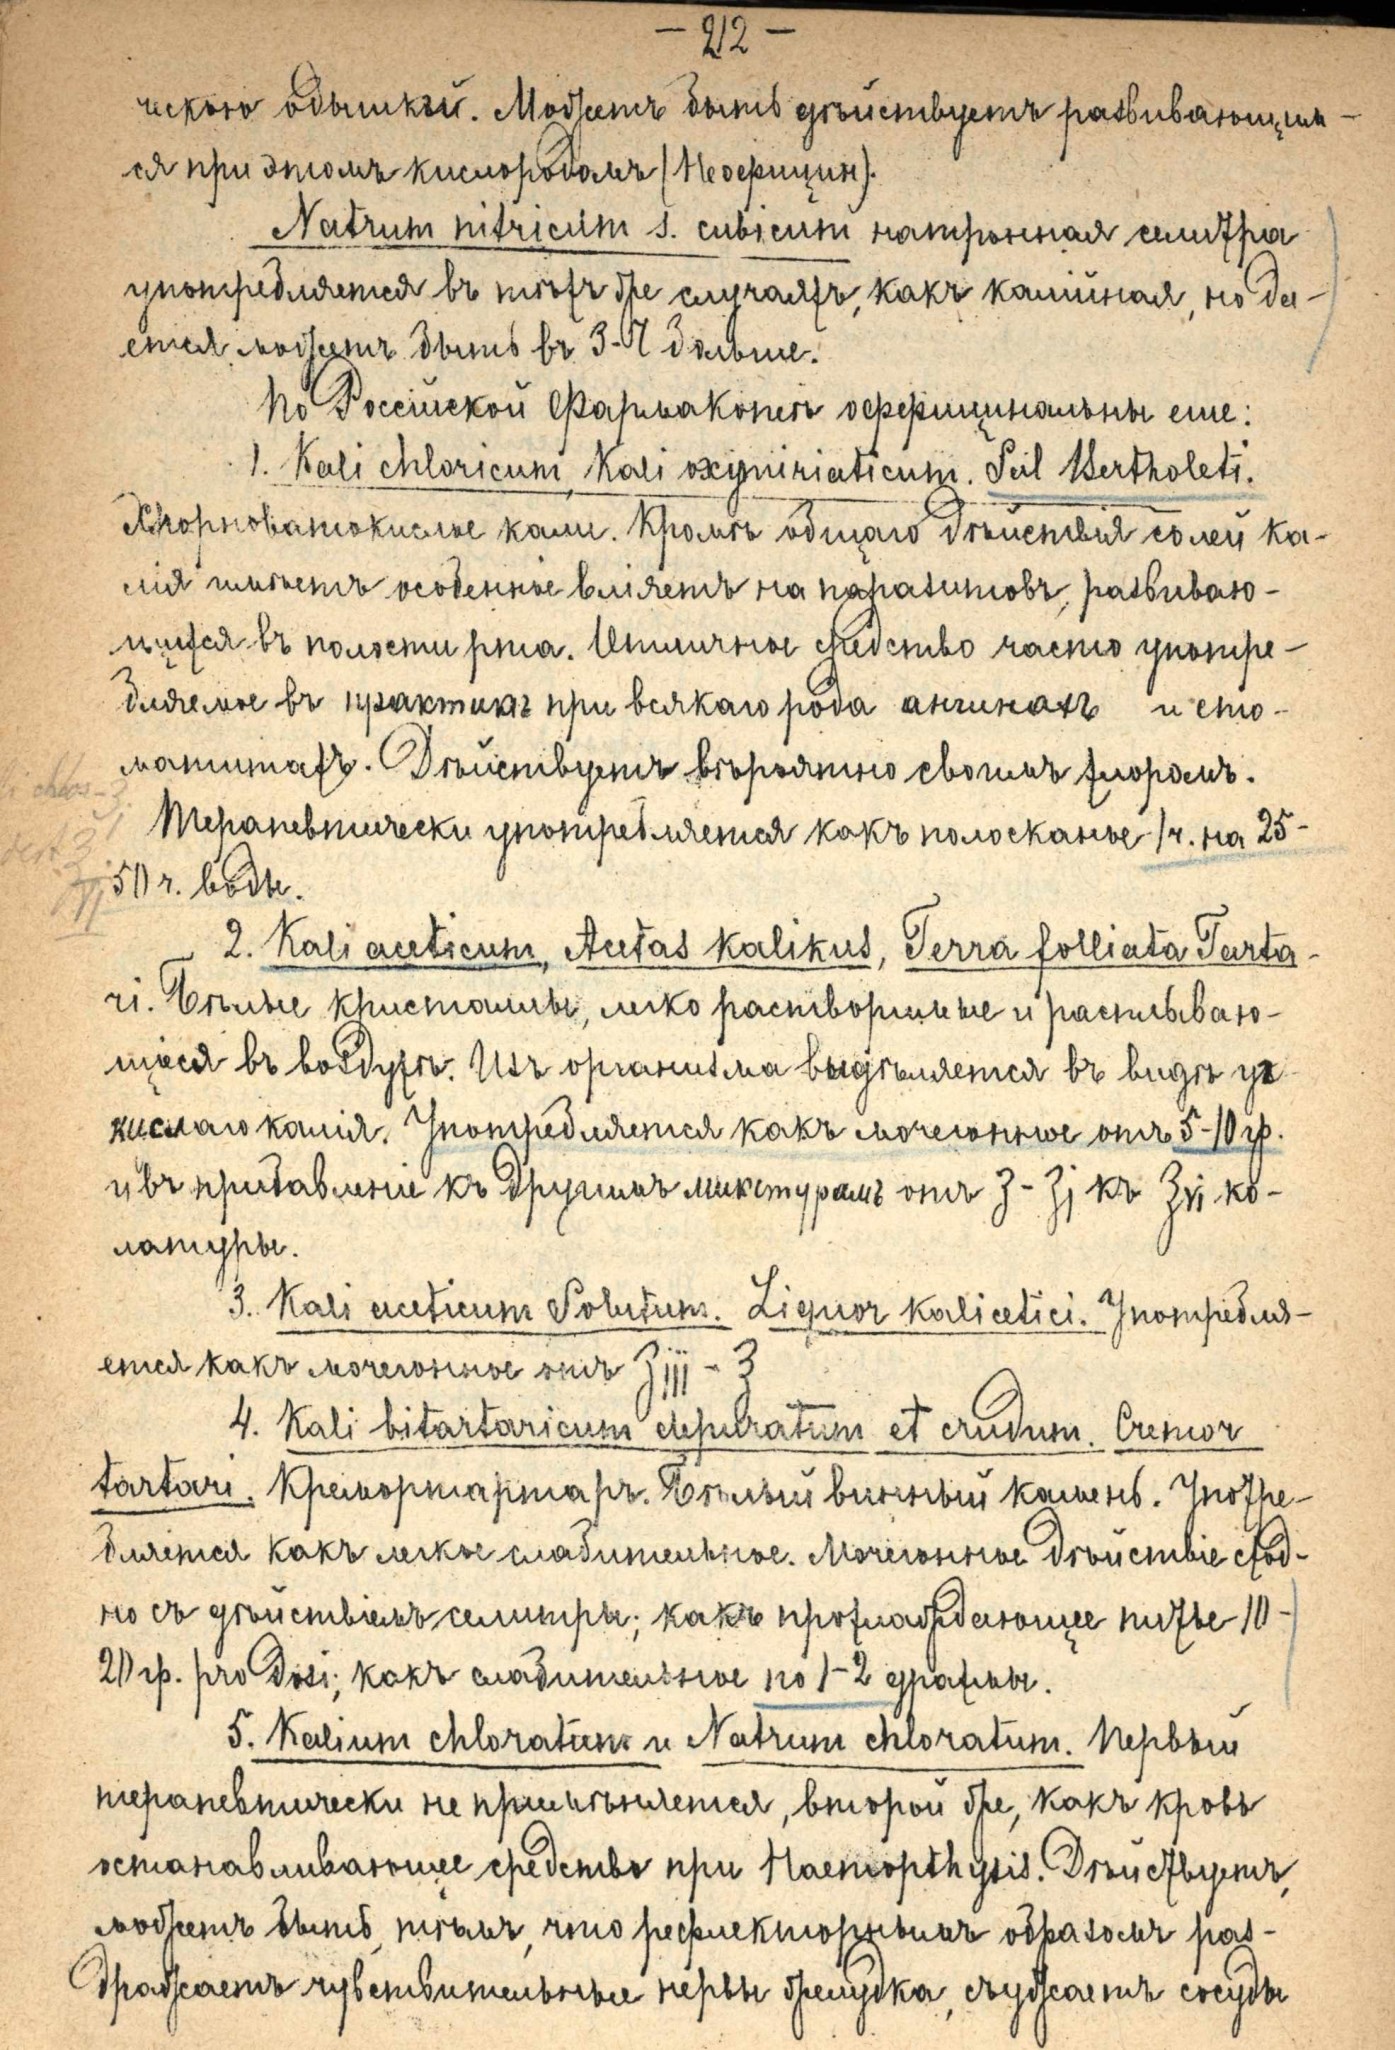 — 212 —
ческою одышкой. Можетъ быть дѣйствуетъ развивающим-
ся при этомъ кислородомъ (Неофицин).
Natrum nitricum s. cubicum натронная селитра
употребляется въ тѣхъ же случаяхъ, какъ калійная, но да-
ется можетъ быть въ 3-4 больше.
По Россійской Фармакопеѣ оффицинальны еще:
1. Kali chloricum, Kali oxymiriaticum. Sal Bertholeti.
Хлорноватокислое кали. Кромѣ общаго дѣйствія солей ка-
лія имѣетъ особенное вліяетъ на паразитовъ, развиваю-
щихся въ полости рта. Отличное средство часто употре-
бляемое въ практикѣ при всякаго рода ангинахъ и сто-
матитахъ. Дѣйствуетъ вѣроятно своимъ хлоромъ.
Терапевтически употребляется какъ полосканье 1 ч. на 25-
50 ч. воды.
2. Kali aceticum, Acetas Kalikus, Terra folliata Tarta-
ri. Бѣлые кристаллы, легко растворимые и расплываю-
щіеся въ воздухѣ. Изъ организма выдѣляется въ видѣ уг
кислаго калія. Употребляется какъ мочегонное отъ 5-10 гр.
и въ прибавленіе къ другимъ микстурамъ отъ ʒ - ʒj къ ʒvj ко-
латуры.
3. Kali aceticum Solutum. Liquor Kalicetici. Употребля-
ется какъ мочегонное отъ ʒiii - ʒ
4. Kali bitartaricum depuratum et crudum. Cremor
tartari. Кремортартаръ. Бѣлый винный камень. Употре-
бляется какъ легкое слабительное. Мочегонное дѣйствіе сход-
но съ дѣйствіемъ селитры; какъ прохлаждающее питье 10-
20 гр. pro dosi; какъ слабительное по 1-2 драхмы.
5. Kalium chloratum и Natrum chloratum. Первый
терапевтически не примѣняется, второй же, какъ кровь
останавливающее средство при Haemopthysis. Дѣйствуетъ,
можетъ быть, тѣмъ, что рефлекторнымъ образомъ раз-
дражаетъ чувствительные нервы желудка, съужаетъ сосуды